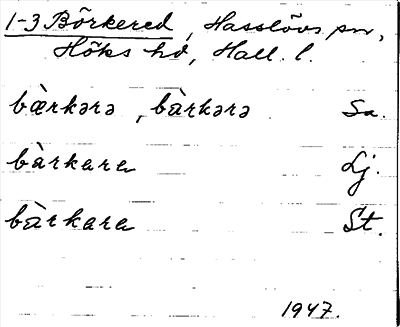 1-3 Börkered, Hasslövs sn,
Höks hd, Hall. l.
bærkərə, bàrkərə Sa.
bàrkara Lj.
bàrkara St.
1947.